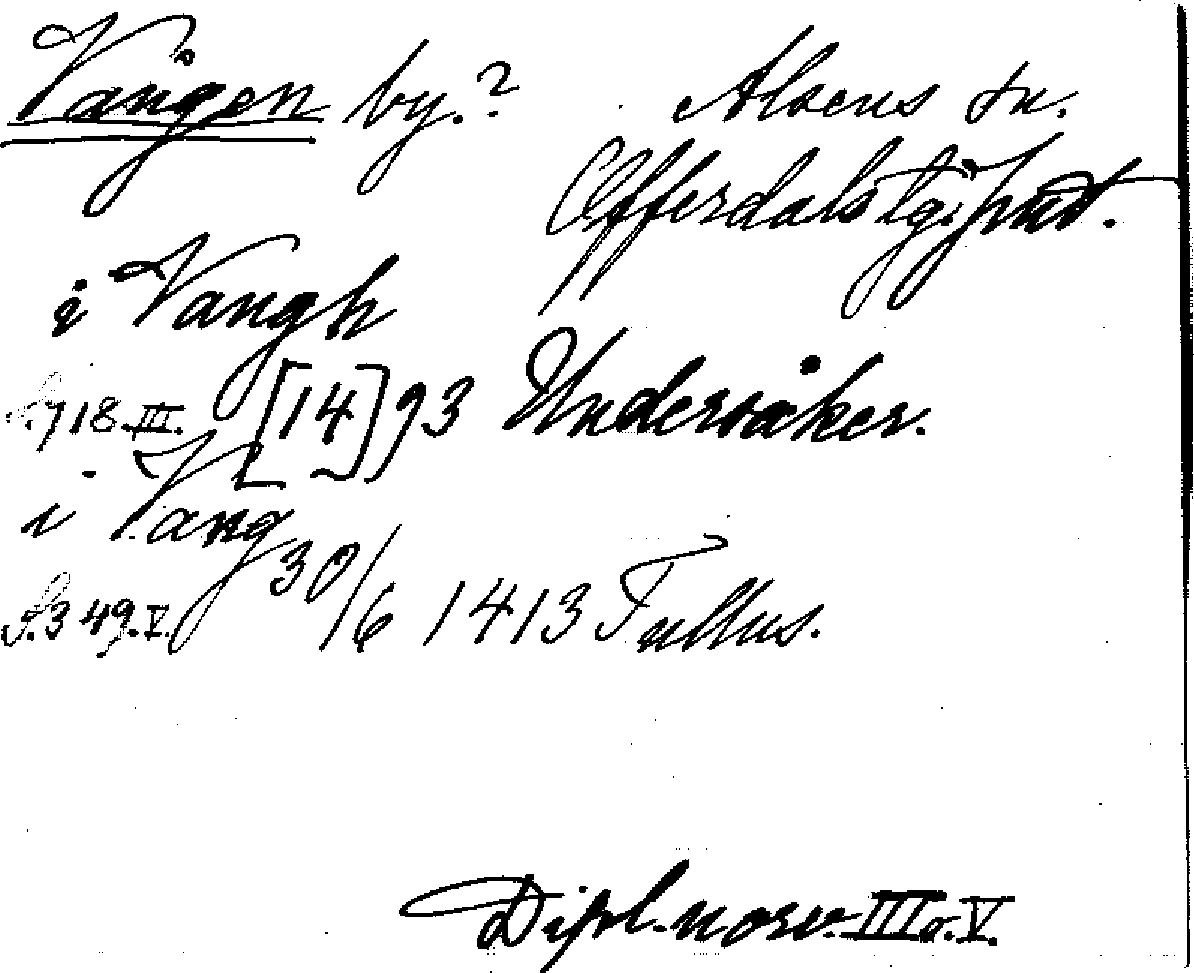 Vången by.? Alsens sn.
Offerdals tg. Jmtl.
i Vangh
S. 718. III. [14]93 Undersåker.
i Vang
S. 349. V. 30/6 1413 Tullus.
Dipl. norv. III o. V.